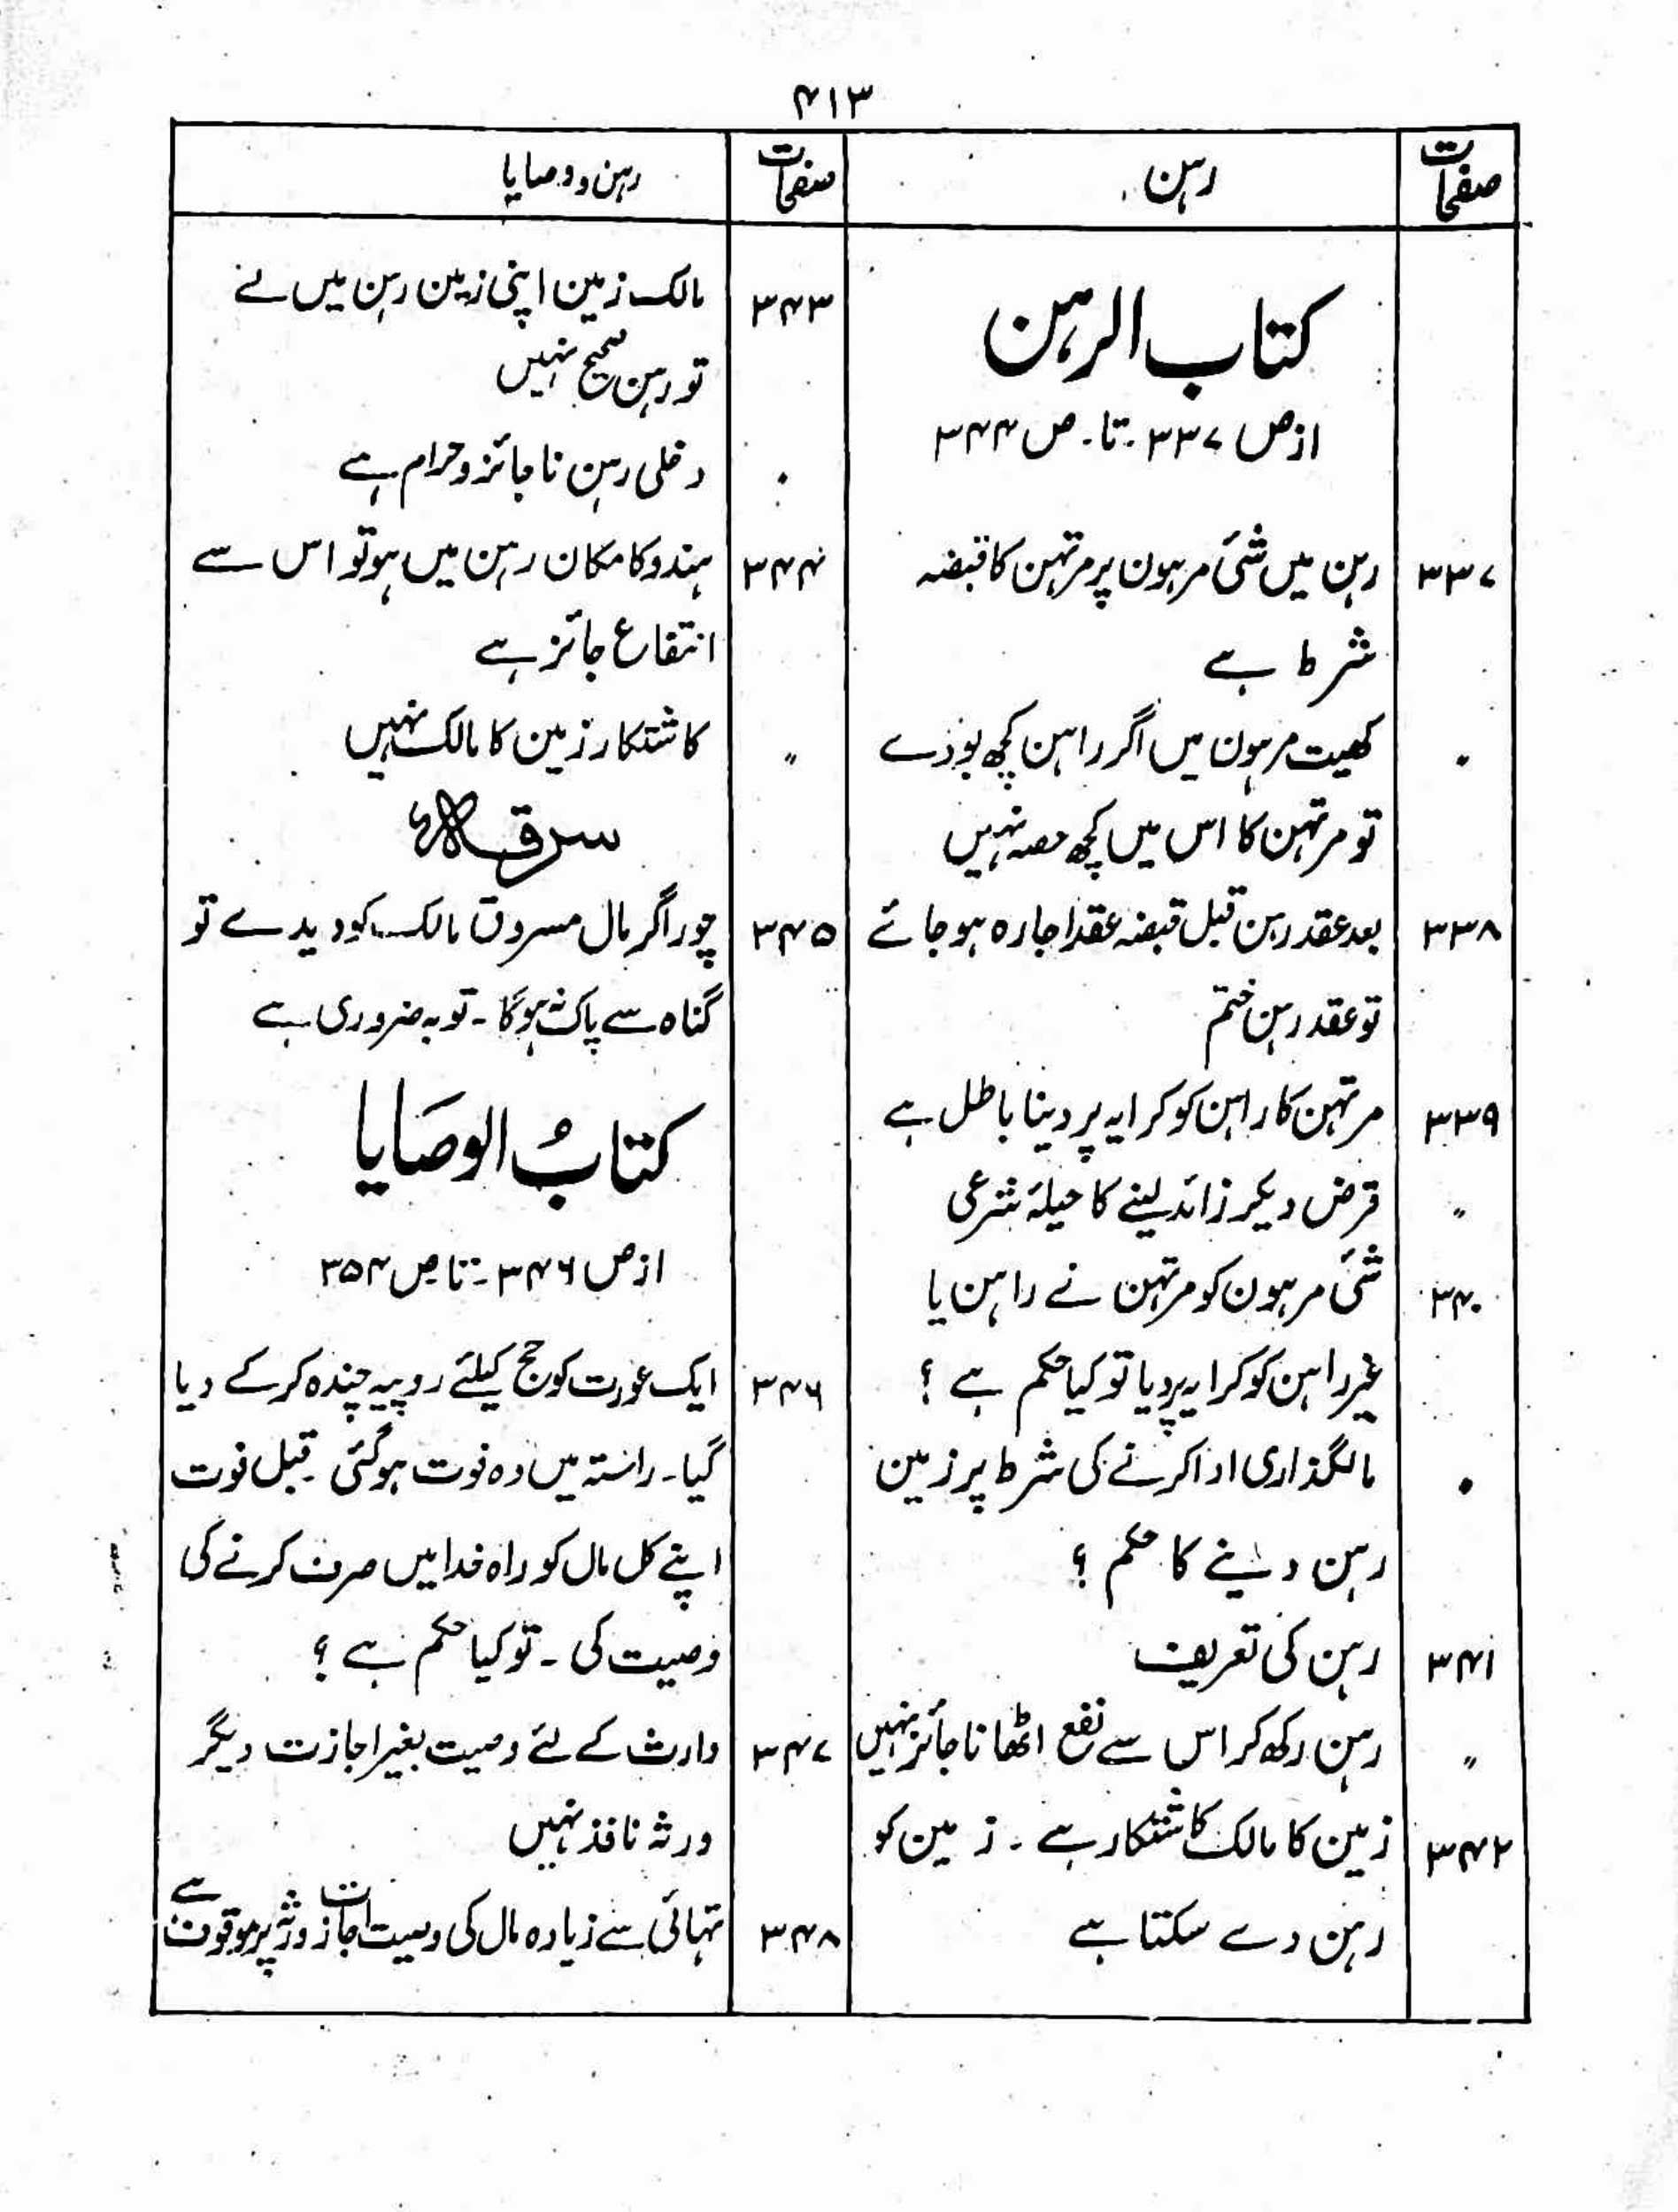 ۴۱۳
صفحات
رہن
کتاب الرہن
از ص ۳۳۷ - تا - ص ۳۴۴
۳۳۷ رہن میں شئی مرہون پر مرتہن کا قبضہ
شرط ہے
〃 کھیت مرہون میں اگر راہن کچھ بو دے
تو مرتہن کا اس میں کچھ حصہ نہیں
۳۳۸ بعد عقد رہن قبل قبضہ عقد اجارہ ہو جائے
تو عقد رہن ختم
۳۳۹ مرتہن کا راہن کو کرایہ پر دینا باطل ہے
〃 قرض دیکر زائد لینے کا حیلۂ شرعی
۳۴۰ شئی مرہون کو مرتہن نے راہن یا
غیر راہن کو کرایہ پر دیا تو کیا حکم ہے ؟
〃 مالگذاری ادا کرنے کی شرط پر زمین
رہن دینے کا حکم ؟
۳۴۱ رہن کی تعریف
〃 رہن رکھ کر اس سے نفع اٹھانا جائز نہیں
۳۴۲ زمین کا مالک کاشتکار ہے ۔ زمین کو
رہن دے سکتا ہے
صفحات
رہن و وصایا
۳۴۳ مالک زمین اپنی زمین رہن میں لے
تو رہن صحیح نہیں
〃 دخلی رہن ناجائز و حرام ہے
۳۴۴ ہندو کا مکان رہن میں ہو تو اس سے
انتفاع جائز ہے
〃 کاشتکار زمین کا مالک نہیں
سرقہ
۳۴۵ چور اگر مال مسروق مالک کو دیدے تو
گناہ سے پاک نہ ہوگا ۔ توبہ ضروری ہے
کتابُ الوصَایا
از ص ۳۴۶ - تا ص ۳۵۴
۳۴۶ ایک عورت کو حج کیلئے روپیہ چندہ کرکے دیا
گیا ۔ راستہ میں وہ فوت ہوگئی ۔ قبل فوت
اپنے کل مال کو راہ خدا میں صرف کرنے کی
وصیت کی ۔ تو کیا حکم ہے ؟
۳۴۷ وارث کے لئے وصیت بغیر اجازت دیگر
ورثہ نافذ نہیں
۳۴۸ تہائی سے زیادہ مال کی وصیت اجازت ورثہ پر موقوف ہے